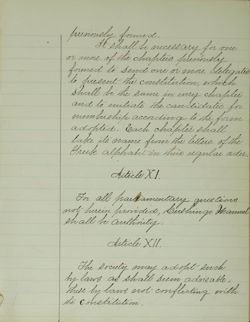 previously formed.
It shall be necessary for one
or more of the chapters previously
formed to send one or more delegates
to present the constitution, which
shall be the same in every chapter
and to initiate the candidates for
membership according to the form
adopted. Each chapter shall
take its name from the letters of the
Greek alphabet in their regular order.
Article XI.
For all parliamentary questions
not herein provided, Cushings Manual
shall be authority.
Article XII.
The society may adopt such
by laws as shall seem advisable.
these by laws not conflicting with
its constitution.